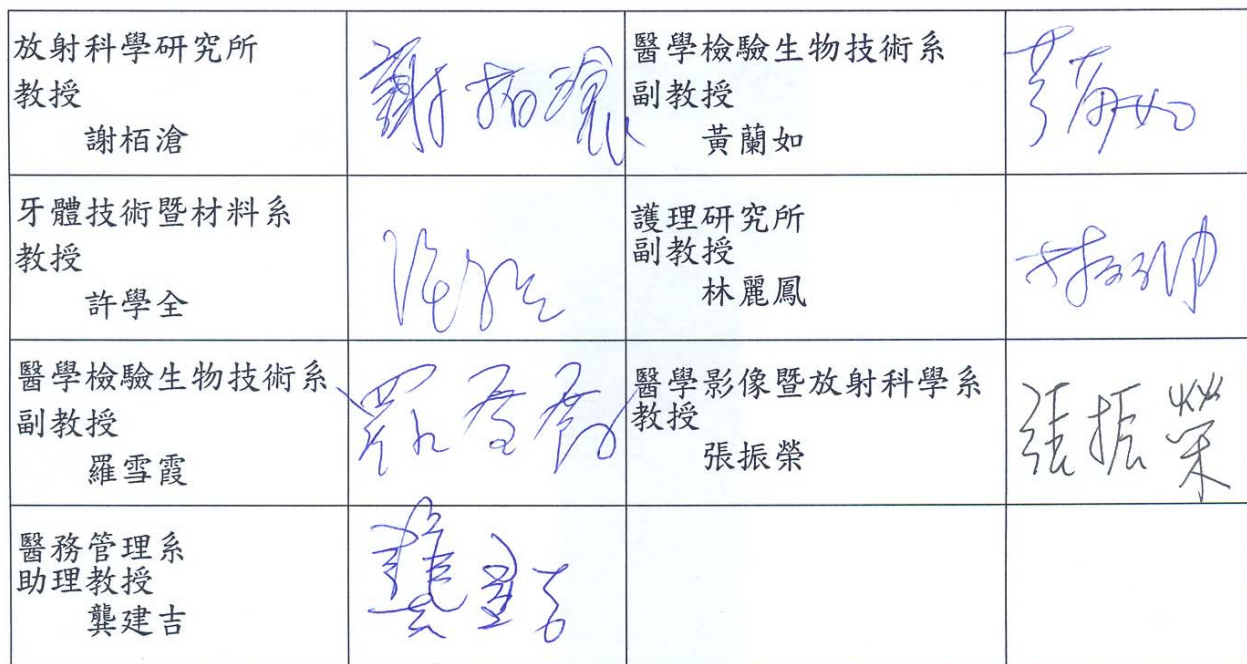 放射科學研究所
教授
謝栢滄
謝栢滄
醫學檢驗生物技術系
副教授
黃蘭如
黃蘭如
牙體技術暨材料系
教授
許學全
許學全
護理研究所
副教授
林麗鳳
林麗鳳
醫學檢驗生物技術系
副教授
羅雪霞
羅雪霞
醫學影像暨放射科學系
教授
張振榮
張振榮
醫務管理系
助理教授
龔建吉
龔建吉